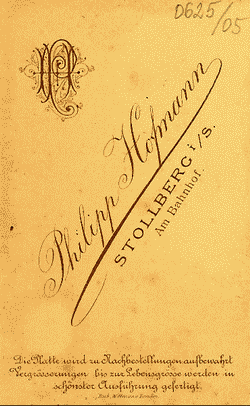 0625/05
PH
Philipp Hofmann
STOLLBERG i/S.
Am Bahnhof.
Die Platte wird zu Nachbestellungen aufbewahrt
Vergrösserungen bis zur Lebensgrösse werden in
schönster Ausführung gefertigt.